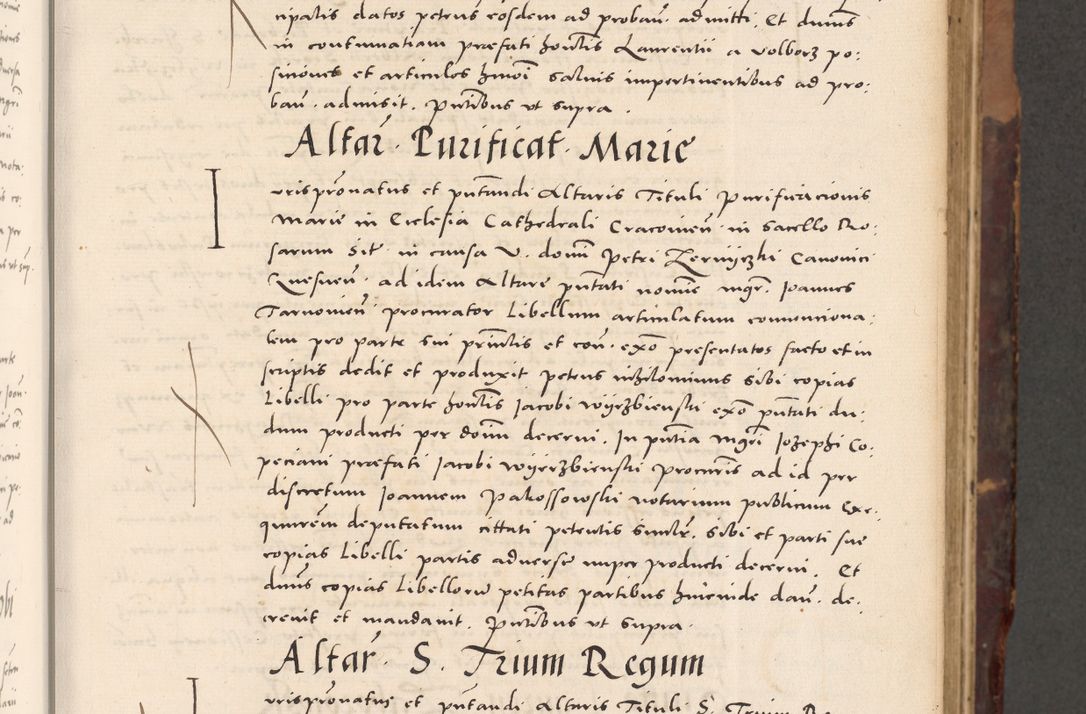 cipalis datos petrus eosdem ad probań admitti. Et dnus
in contumatiam præfati honlis Laurentii a volborz po:
sitiones et articulos hmoi saluis impertinentibus ad pro:
bań. admisit. Pntibus vt supra.
Altar. Purificat. Marie
Iurispronatus et pntandi Altaris Tituli Purificacionis
Marie in Ecclesia Cathedrali Cracouien. in sacello Ro:
sarum Site in causa V. domi Petri Canonici
ad idem Altare pntati nomine mgr. Ioannes
Tarnouien procurator Libellum articulatum conuenciona:
lem pro parte sui prinlis et con. exo presentatos facto et in
scriptis dedit et produxit petens nihilominus sibi copias
Libelli pro parte honlis Iacobi wyrzbienski exo pntati du:
dum producti per domi decerni. In pntia mgri Iozephi Co:
peciani præfati Iacobi wyerzbienski procuris ad id per
discretum Ioannem Pakossowski notarium publicum Exe:
quutorem deputatum cittati petentis similr. sibi et parti sue
copias Libelli partis aduerse nuper producti decerni. Et
dnus copias Libellorum petitas partibus hincinde dań. de:
creuit et mandauit. Pntibus vt supra.
Altar. S. Trium Regum
Iurispronatus et pntandi Altaris Tituli S. Trium Re